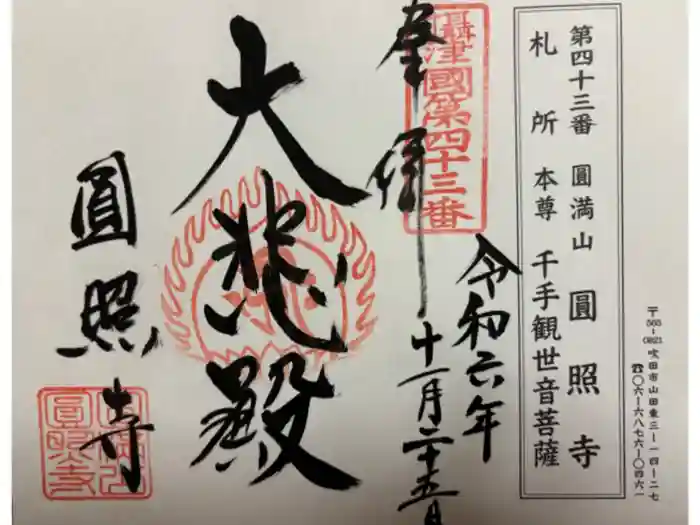 第四十三番 圓満山 圓照寺
札所本尊 千手観世音菩薩
〒565-0821 吹田市山田東三ー一四ー二七
☎〇六ー六八七六ー〇四六一
奉拝
攝津國第四十三番
令和六年
十一月二十五日
大悲殿
圓照寺